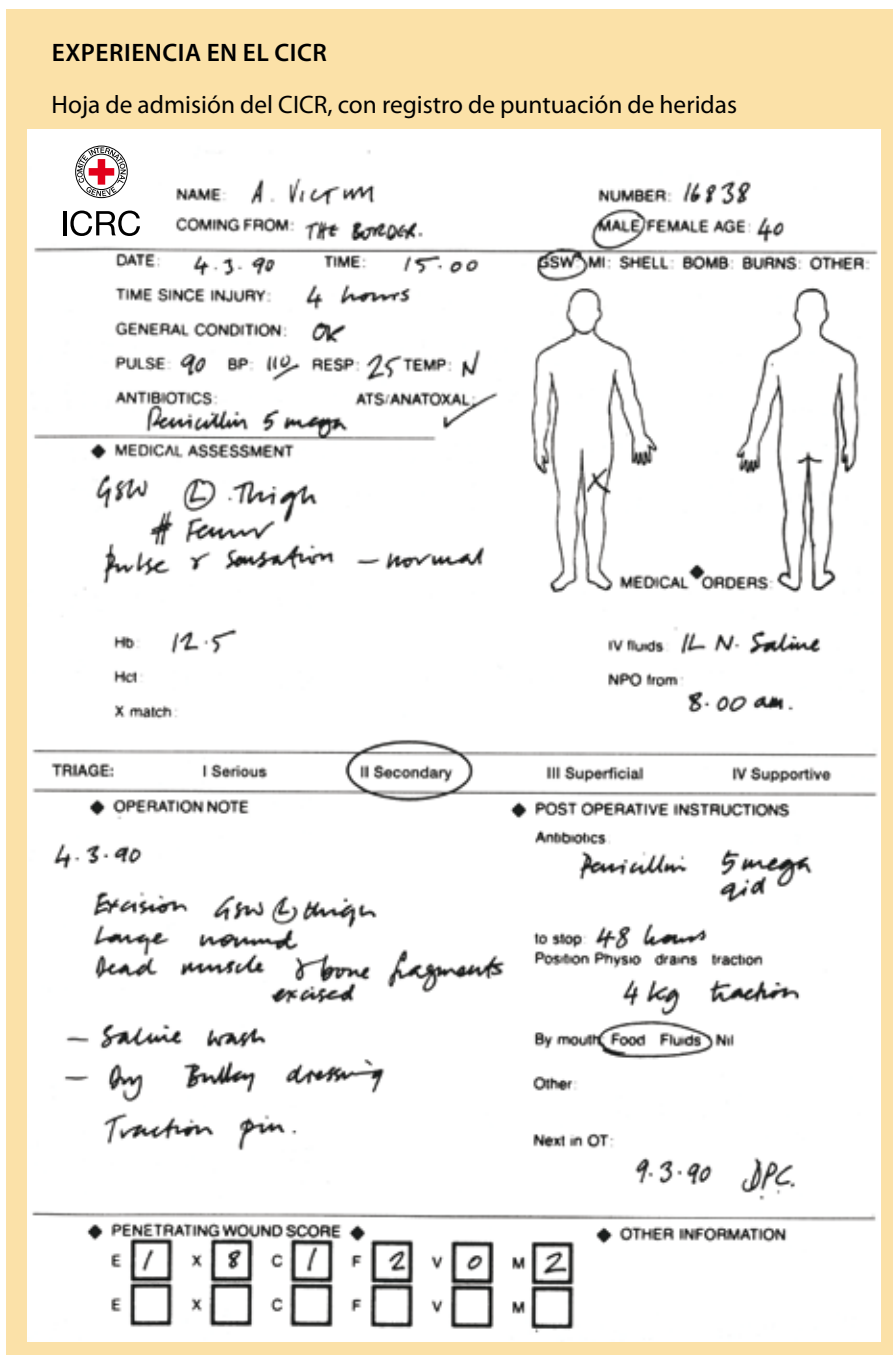 EXPERIENCIA EN EL CICR
Hoja de admisión del CICR, con registro de puntuación de heridas
COMITE INTERNATIONAL GENEVE
ICRC
NAME: A. VICTIM
NUMBER: 16838
COMING FROM: THE BORDER.
MALE/FEMALE AGE: 40
DATE: 4.3.90 TIME: 15.00
GSW: MI: SHELL: BOMB: BURNS: OTHER:
TIME SINCE INJURY: 4 hours
GENERAL CONDITION: OK
PULSE: 90 BP: 110/ RESP: 25 TEMP: N
ANTIBIOTICS: ATS/ANATOXAL: ✓
Penicillin 5 mega
◆ MEDICAL ASSESSMENT
GSW (L) Thigh
# Femur
Pulse & Sensation - normal
X
◆ MEDICAL ORDERS:
Hb: 12.5
IV fluids: 1L N. Saline
Hct:
NPO from:
8.00 am.
X match:
TRIAGE: I Serious II Secondary III Superficial IV Supportive
◆ OPERATION NOTE
4.3.90
Excision GSW (L) thigh
Large wound
Dead muscle & bone fragments
excised
- Saline wash
- Dry Bulky dressing
Traction pin.
◆ POST OPERATIVE INSTRUCTIONS
Antibiotics:
Penicillin 5 mega
qid
to stop: 48 hours
Position Physio drains traction
4 kg traction
By mouth: Food Fluids Nil
Other:
Next in OT:
9.3.90 DPC.
◆ PENETRATING WOUND SCORE ◆
◆ OTHER INFORMATION
E 1 X 8 C 1 F 2 V 0 M 2
E X C F V M